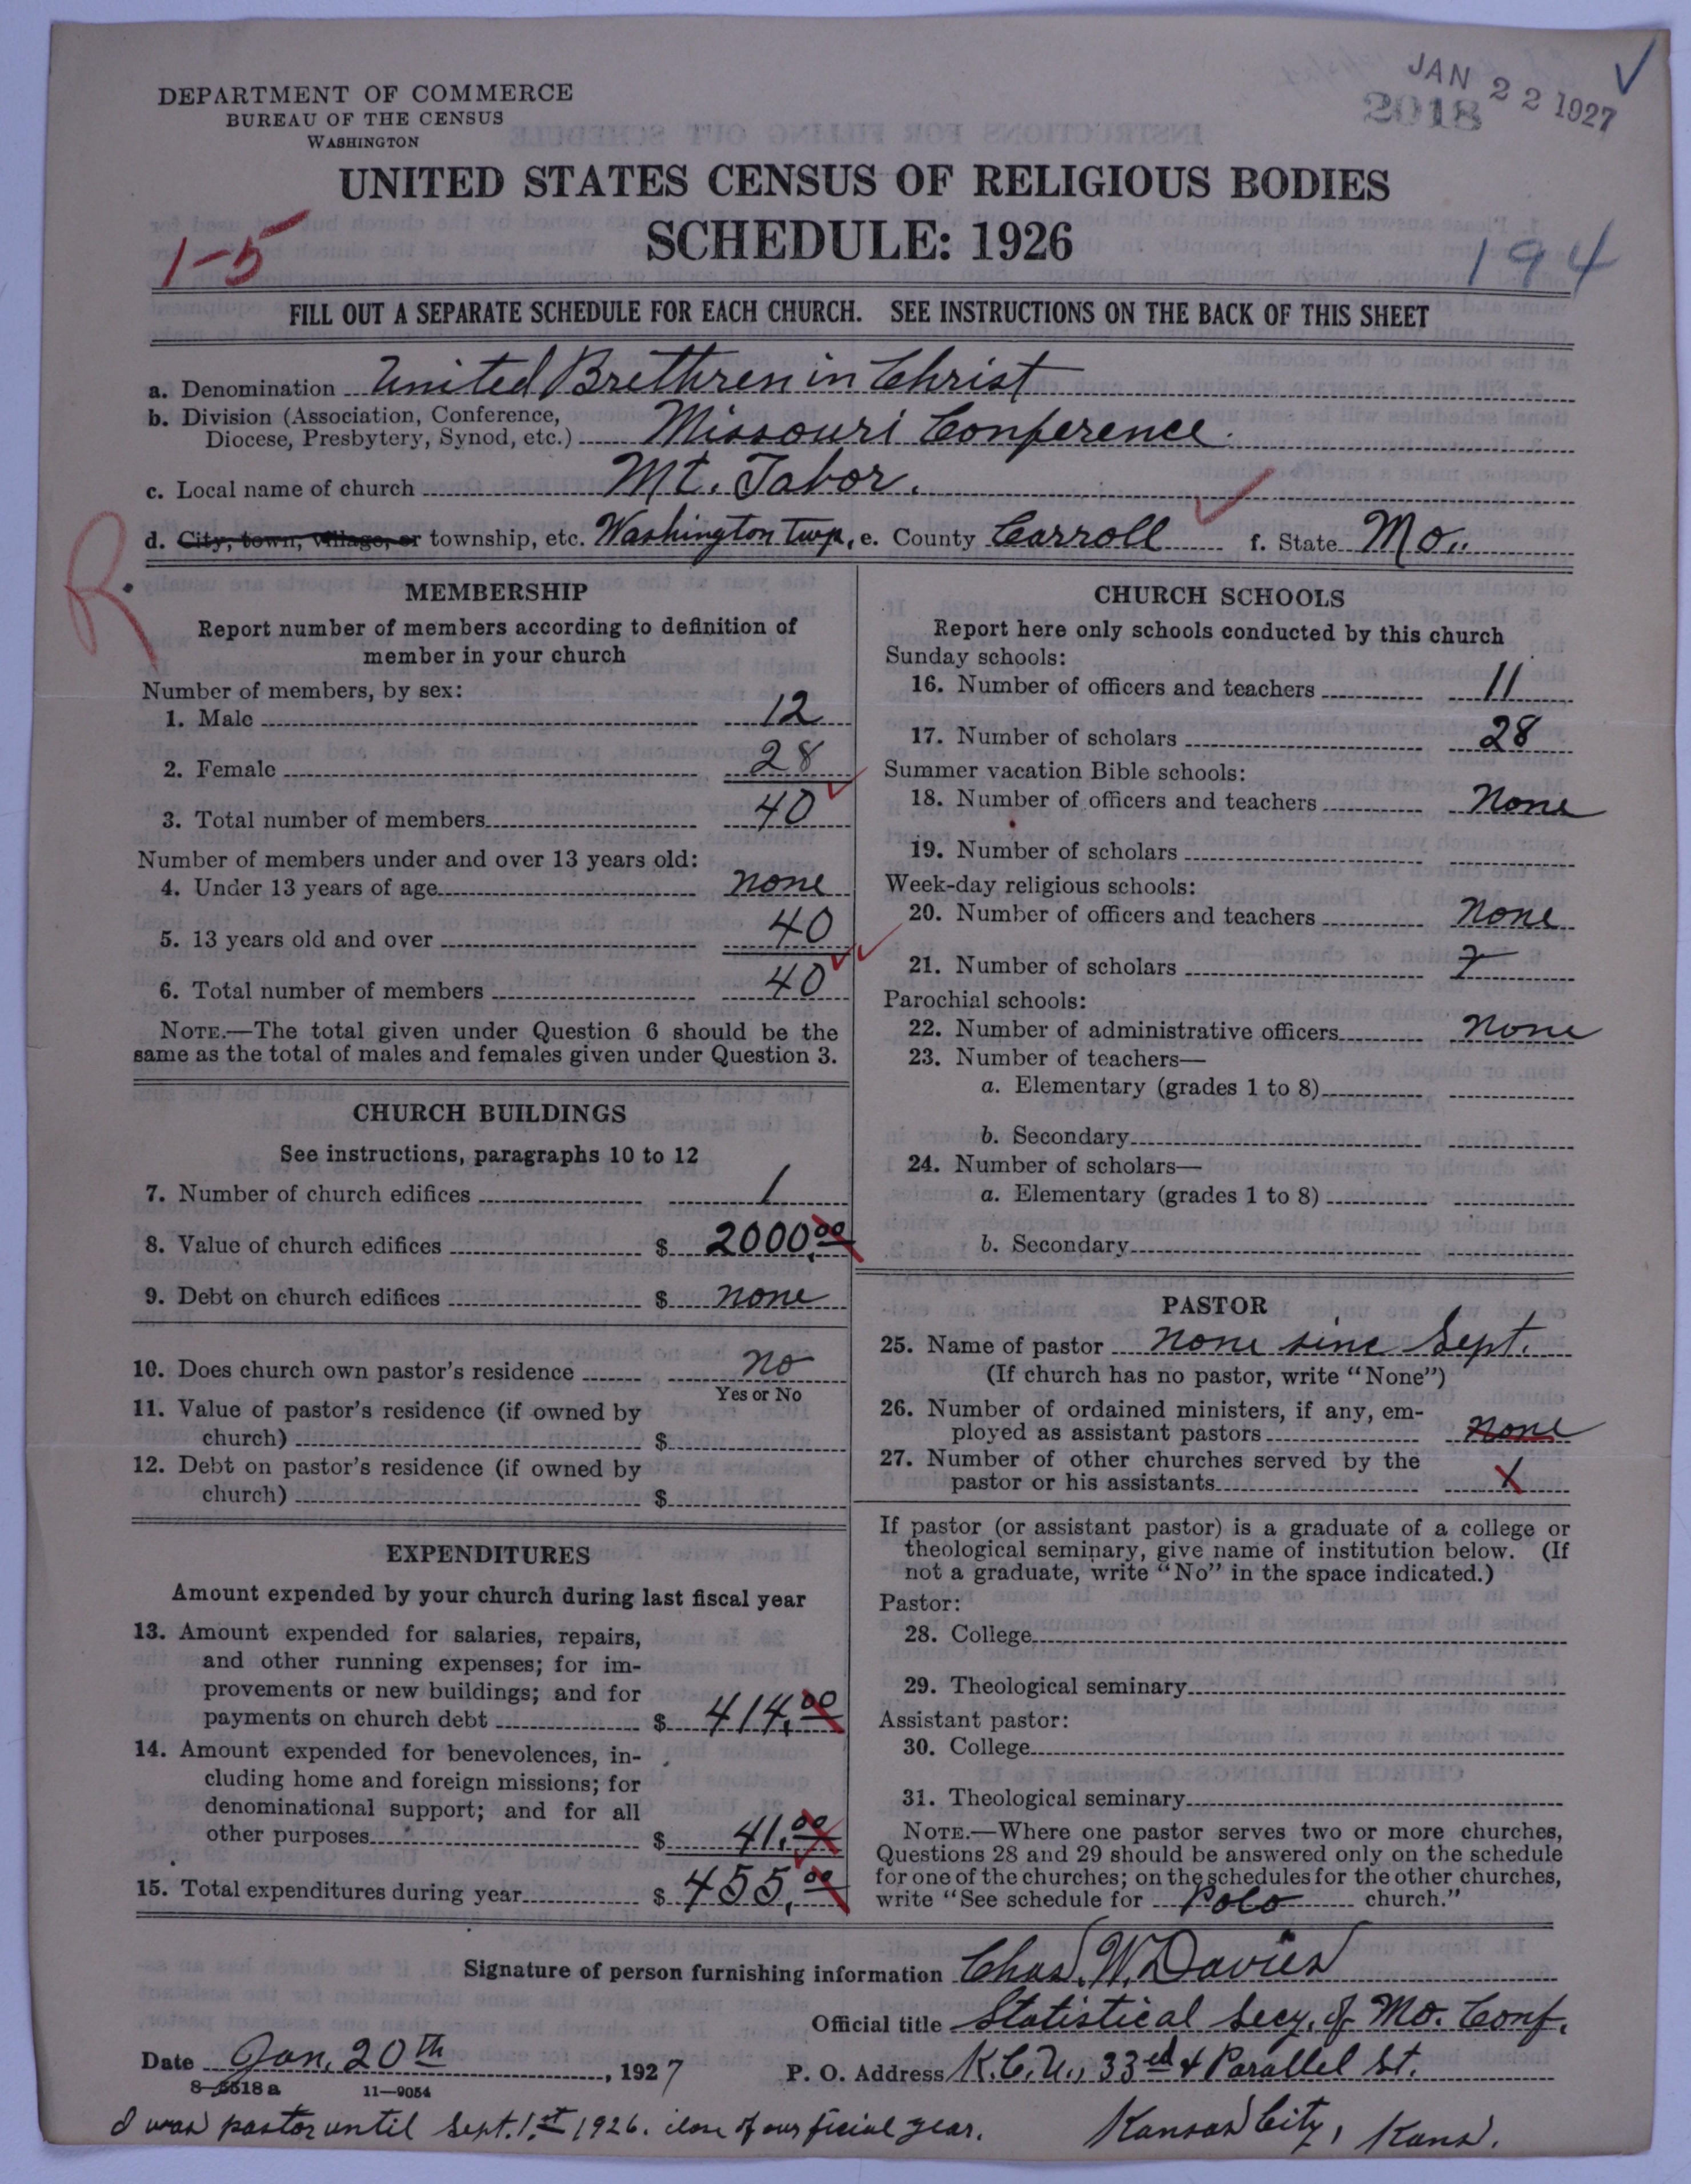 JAN 22 1927
2018
DEPARTMENT OF COMMERCE
BUREAU OF THE CENSUS
WASHINGTON
UNITED STATES CENSUS OF RELIGIOUS BODIES
SCHEDULE: 1926
1-5
194
FILL OUT A SEPARATE SCHEDULE FOR EACH CHURCH. SEE INSTRUCTIONS ON THE BACK OF THIS SHEET
a. Denomination United Brethren in Christ
b. Division (Association, Conference,
Diocese, Presbytery, Synod, etc.) Missouri Conference.
c. Local name of church Mt. Tabor.
d. City, town, village, or township, etc. Washington twp, e. County Carroll f. State Mo.
R
MEMBERSHIP
Report number of members according to definition of
member in your church
Number of members, by sex:
1. Male 12
2. Female 28
3. Total number of members 40
Number of members under and over 13 years old:
4. Under 13 years of age none
5. 13 years old and over 40
6. Total number of members 40
NOTE.—The total given under Question 6 should be the
same as the total of males and females given under Question 3.
CHURCH BUILDINGS
See instructions, paragraphs 10 to 12
7. Number of church edifices 1
8. Value of church edifices $ 2000.00
9. Debt on church edifices $ none
10. Does church own pastor's residence no
Yes or No
11. Value of pastor's residence (if owned by
church) $
12. Debt on pastor's residence (if owned by
church) $
EXPENDITURES
Amount expended by your church during last fiscal year
13. Amount expended for salaries, repairs,
and other running expenses; for im-
provements or new buildings; and for
payments on church debt $ 414.00
14. Amount expended for benevolences, in-
cluding home and foreign missions; for
denominational support; and for all
other purposes $ 41.00
15. Total expenditures during year $ 455.00
CHURCH SCHOOLS
Report here only schools conducted by this church
Sunday schools:
16. Number of officers and teachers 11
17. Number of scholars 28
Summer vacation Bible schools:
18. Number of officers and teachers None
19. Number of scholars
Week-day religious schools:
20. Number of officers and teachers none
21. Number of scholars
Parochial schools:
22. Number of administrative officers none
23. Number of teachers—
a. Elementary (grades 1 to 8)
b. Secondary
24. Number of scholars—
a. Elementary (grades 1 to 8)
b. Secondary
PASTOR
25. Name of pastor none sinc Sept.
(If church has no pastor, write "None")
26. Number of ordained ministers, if any, em-
ployed as assistant pastors none
27. Number of other churches served by the
pastor or his assistants 1
If pastor (or assistant pastor) is a graduate of a college or
theological seminary, give name of institution below. (If
not a graduate, write "No" in the space indicated.)
Pastor:
28. College
29. Theological seminary
Assistant pastor:
30. College
31. Theological seminary
NOTE.—Where one pastor serves two or more churches,
Questions 28 and 29 should be answered only on the schedule
for one of the churches; on the schedules for the other churches,
write "See schedule for Polo church."
Signature of person furnishing information Chas. W. Davies
Official title Statistical Secy. of Mo. Conf.
Date Jan. 20th, 1927 P. O. Address K.C.U., 33ed & Parallel St.
8-5518a 11-9054
I was pastor until Sept. 1st 1926. close of our ficial year. Kansas City, Kans.